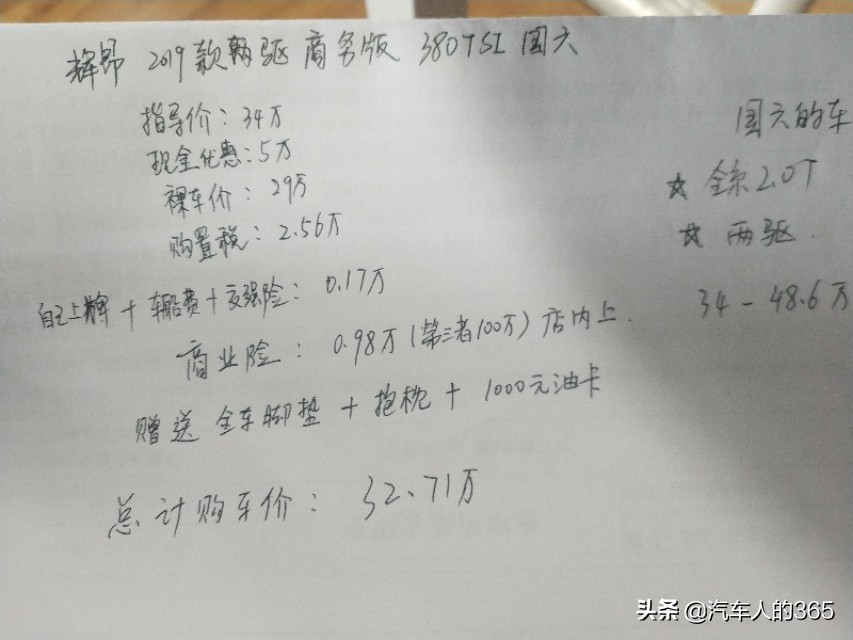 辉昂 2019款两驱 商务版 380TSI 国六
指导价：34万
现金优惠：5万
裸车价：29万
购置税：2.56万
自己上牌＋车船费＋交强险：0.17万
商业险：0.98万（第三者100万）店内上.
赠送 全车脚垫＋抱枕＋1000元油卡
总计购车价：32.71万
国六的车
☆ 全系2.0T
☆ 两驱.
34－48.6万
头条 @汽车人的365